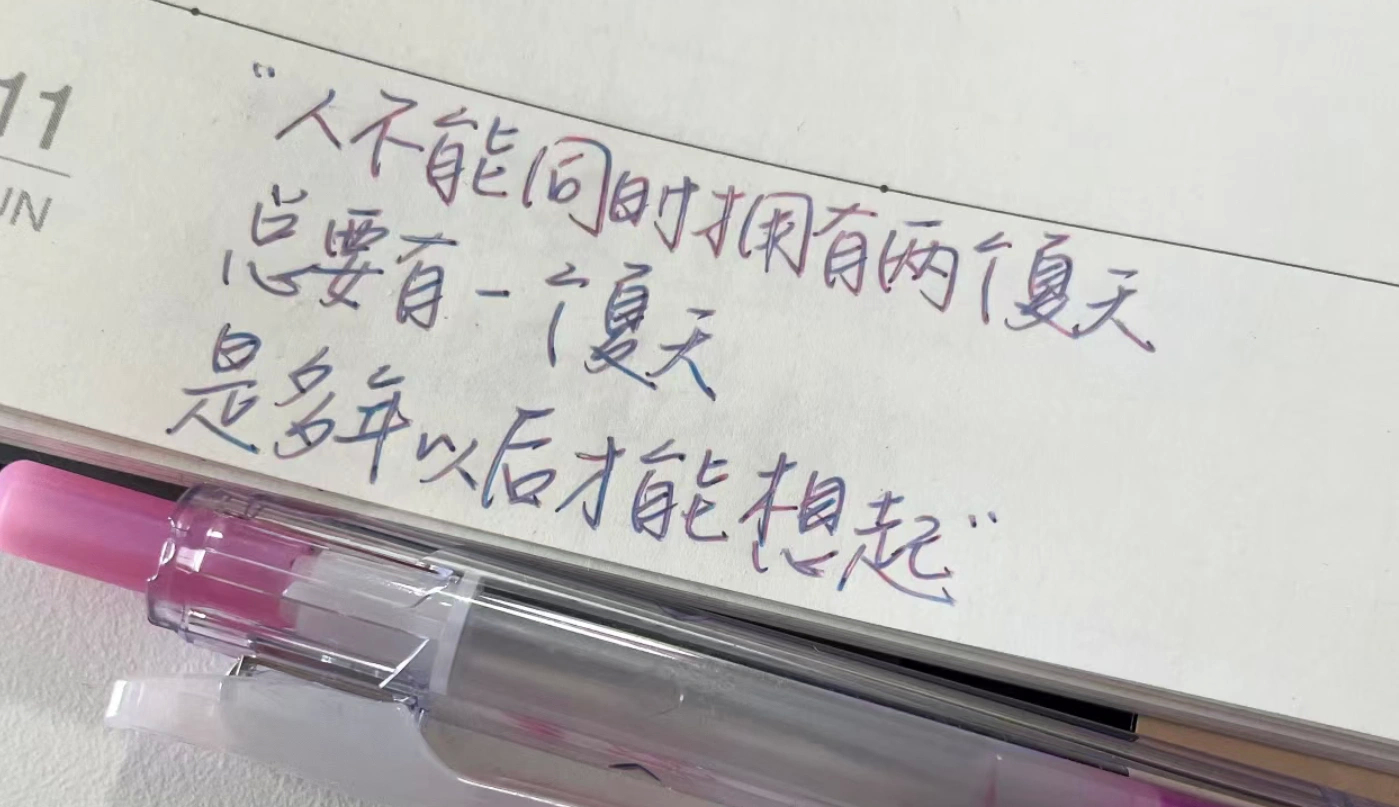 11
UN
“人不能同时拥有两个夏天
总要有一个夏天
是多年以后才能想起”